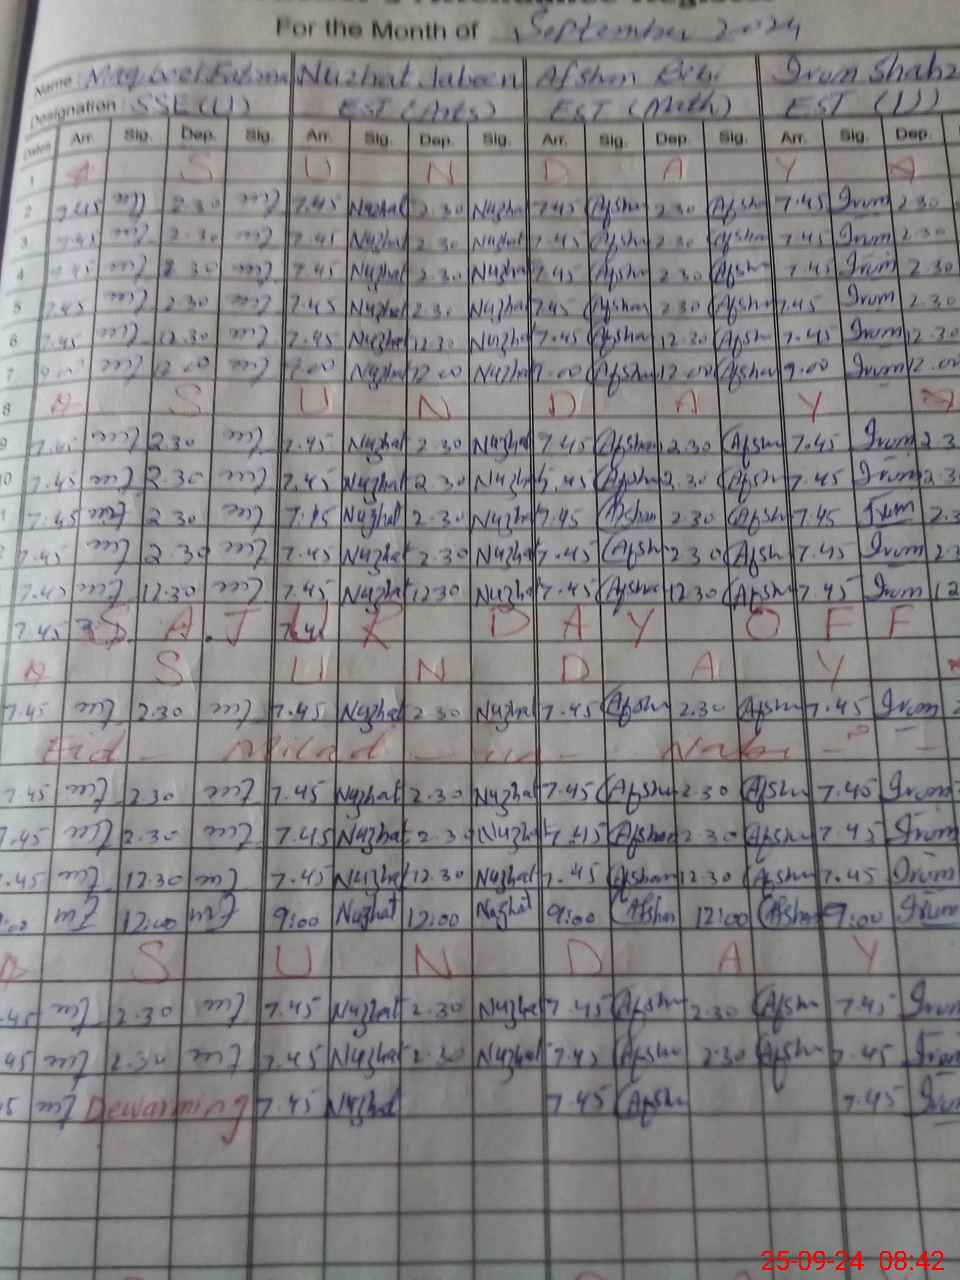 For the Month of September 2024
Name: Maqbool Fatima Nuzhat Jabeen Afshan Bibi Irum Shahz
Designation: SSE(U) EST (Arts) EST (Math) EST (U)
Dates Arr. Sig. Dep. Sig. Arr. Sig. Dep. Sig. Arr. Sig. Dep. Sig. Arr. Sig. Dep.
1 S U N D A Y
2 7.45 2.30 7.45 Nuzhat 2.30 Nuzhat 7.45 Afshan 2.30 Afshan 7.45 Irum 2.30
3 7.45 2.30 7.45 Nuzhat 2.30 Nuzhat 7.45 Afshan 2.30 Afshan 7.45 Irum 2.30
4 7.45 2.30 7.45 Nuzhat 2.30 Nuzhat 7.45 Afshan 2.30 Afshan 7.45 Irum 2.30
5 7.45 2.30 7.45 Nuzhat 2.30 Nuzhat 7.45 Afshan 2.30 Afshan 7.45 Irum 2.30
6 7.45 12.30 7.45 Nuzhat 12.30 Nuzhat 7.45 Afshan 12.30 Afshan 7.45 Irum 12.30
7 9.00 12.00 9.00 Nuzhat 12.00 Nuzhat 9.00 Afshan 12.00 Afshan 9.00 Irum 12.00
8 S U N D A Y
9 7.45 2.30 7.45 Nuzhat 2.30 Nuzhat 7.45 Afshan 2.30 Afshan 7.45 Irum 2.3
10 7.45 2.30 7.45 Nuzhat 2.30 Nuzhat 7.45 Afshan 2.30 Afshan 7.45 Irum 2.3
7.45 2.30 7.45 Nuzhat 2.30 Nuzhat 7.45 Afshan 2.30 Afshan 7.45 Irum 2.3
7.45 2.30 7.45 Nuzhat 2.30 Nuzhat 7.45 Afshan 2.30 Afshan 7.45 Irum 2.3
7.45 12.30 7.45 Nuzhat 12.30 Nuzhat 7.45 Afshan 12.30 Afshan 7.45 Irum 12
7.45 S A T U R D A Y O F F
S U N D A Y
7.45 2.30 7.45 Nuzhat 2.30 Nuzhat 7.45 Afshan 2.30 Afshan 7.45 Irum 2
Eid - Milad - un - Nabi -
7.45 2.30 7.45 Nuzhat 2.30 Nuzhat 7.45 Afshan 2.30 Afshan 7.45 Irum
7.45 2.30 7.45 Nuzhat 2.30 Nuzhat 7.45 Afshan 2.30 Afshan 7.45 Irum
7.45 12.30 7.45 Nuzhat 12.30 Nuzhat 7.45 Afshan 12.30 Afshan 7.45 Irum
12:00 9:00 Nuzhat 12:00 Nuzhat 9:00 Afshan 12:00 Afshan 9:00 Irum
S U N D A Y
.45 2.30 7.45 Nuzhat 2.30 Nuzhat 7.45 Afshan 2.30 Afshan 7.45 Irum
45 2.30 7.45 Nuzhat 2.30 Nuzhat 7.45 Afshan 2.30 Afshan 7.45 Irum
5 Dewarming 7.45 Nuzhat 7.45 Afshan 7.45 Irum
25-09-24 08:42